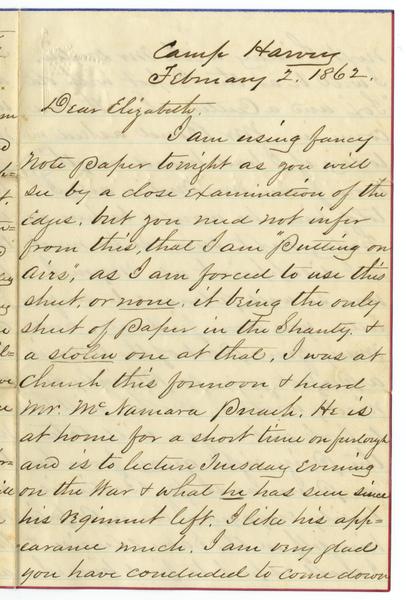 Camp Harvey
February 2. 1862.
Dear Elizabeth.
I am using fancy
Note Paper tonight as you will
see by a close examination of the
Edges. but you need not infer
from this, that I am "Putting on
Airs", as I am forced to use this
sheet, or none, it being the only
sheet of Paper in the Shanty. &
a stolen one at that. I was at
Church this forenoon & heard
Mr. McNamara Preach. He is
at home for a short time on furlough
and is to lecture Tuesday Evening
on the War & what he has seen since
his Regiment left. I like his app=
earance much. I am very glad
you have concluded to come down